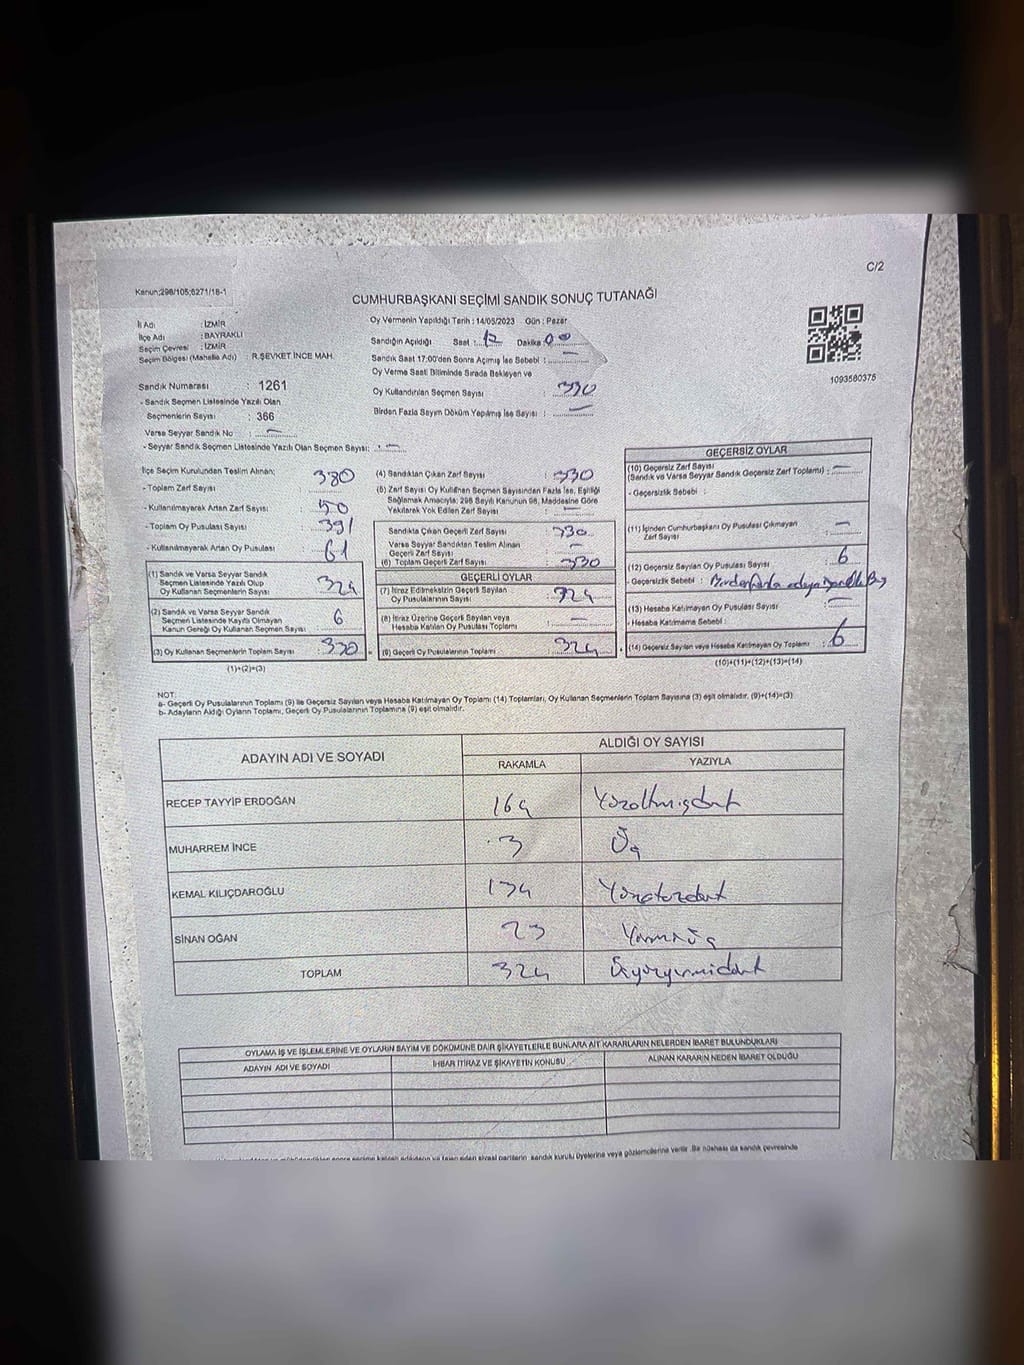 C/2
Kanun;298/105;6271/18-1
CUMHURBAŞKANI SEÇİMİ SANDIK SONUÇ TUTANAĞI
İl Adı : İZMİR
İlçe Adı : BAYRAKLI
Seçim Çevresi : İZMİR
Seçim Bölgesi (Mahalle Adı) : R.ŞEVKET İNCE MAH.
Sandık Numarası : 1261
- Sandık Seçmen Listesinde Yazılı Olan
Seçmenlerin Sayısı : 366
Varsa Seyyar Sandık No : —
- Seyyar Sandık Seçmen Listesinde Yazılı Olan Seçmen Sayısı: —
Oy Vermenin Yapıldığı Tarih : 14/05/2023 Gün : Pazar
Sandığın Açıldığı Saat : 17 Dakika : 00
Sandık Saat 17:00'den Sonra Açılmış İse Sebebi : —
Oy Verme Saati Bitiminde Sırada Bekleyen ve
Oy Kullandırılan Seçmen Sayısı : 330
Birden Fazla Sayım Döküm Yapılmış İse Sayısı : —
1093580375
İlçe Seçim Kurulundan Teslim Alınan;
- Toplam Zarf Sayısı 380
- Kullanılmayarak Artan Zarf Sayısı: 50
- Toplam Oy Pusulası Sayısı 391
- Kullanılmayarak Artan Oy Pusulası 61
(1) Sandık ve Varsa Seyyar Sandık
Seçmen Listesinde Yazılı Olup
Oy Kullanan Seçmenlerin Sayısı 324
(2) Sandık ve Varsa Seyyar Sandık
Seçmen Listesinde Kayıtlı Olmayan
Kanun Gereği Oy Kullanan Seçmen Sayısı 6
(3) Oy Kullanan Seçmenlerin Toplam Sayısı 330
(1)+(2)=(3)
(4) Sandıktan Çıkan Zarf Sayısı : 330
(5) Zarf Sayısı Oy Kullanan Seçmen Sayısından Fazla İse, Eşitliği
Sağlamak Amacıyla; 298 Sayılı Kanunun 98. Maddesine Göre
Yakılarak Yok Edilen Zarf Sayısı : —
Sandıkta Çıkan Geçerli Zarf Sayısı : 330
Varsa Seyyar Sandıktan Teslim Alınan
Geçerli Zarf Sayısı : —
(6) Toplam Geçerli Zarf Sayısı : 330
GEÇERLİ OYLAR
(7) İtiraz Edilmeksizin Geçerli Sayılan
Oy Pusulalarının Sayısı : 324
(8) İtiraz Üzerine Geçerli Sayılan veya
Hesaba Katılan Oy Pusulası Toplamı : —
(9) Geçerli Oy Pusulalarının Toplamı : 324
GEÇERSİZ OYLAR
(10) Geçersiz Zarf Sayısı
(Sandık ve Varsa Seyyar Sandık Geçersiz Zarf Toplamı) : —
- Geçersizlik Sebebi :
(11) İçinden Cumhurbaşkanı Oy Pusulası Çıkmayan
Zarf Sayısı : —
(12) Geçersiz Sayılan Oy Pusulası Sayısı : 6
- Geçersizlik Sebebi : Birden fazla adaya
(13) Hesaba Katılmayan Oy Pusulası Sayısı : —
- Hesaba Katılmama Sebebi :
(14) Geçersiz Sayılan veya Hesaba Katılmayan Oy Toplamı : 6
(10)+(11)+(12)+(13)=(14)
NOT:
a- Geçerli Oy Pusulalarının Toplamı (9) ile Geçersiz Sayılan veya Hesaba Katılmayan Oy Toplamı (14) Toplamları, Oy Kullanan Seçmenlerin Toplam Sayısına (3) eşit olmalıdır. (9)+(14)=(3)
b- Adayların Aldığı Oyların Toplamı, Geçerli Oy Pusulalarının Toplamına (9) eşit olmalıdır.
ADAYIN ADI VE SOYADI
ALDIĞI OY SAYISI
RAKAMLA YAZIYLA
RECEP TAYYİP ERDOĞAN 164 Yüzaltmışdört
MUHARREM İNCE 3 Üç
KEMAL KILIÇDAROĞLU 134 Yüzotuzdört
SİNAN OĞAN 23 Yirmiüç
TOPLAM 324 Üçyüzyirmidört
OYLAMA İŞ VE İŞLEMLERİNE VE OYLARIN SAYIM VE DÖKÜMÜNE DAİR ŞİKAYETLERLE BUNLARA AİT KARARLARIN NELERDEN İBARET BULUNDUKLARI
ADAYIN ADI VE SOYADI İHBAR İTİRAZ VE ŞİKAYETİN KONUSU ALINAN KARARIN NEDEN İBARET OLDUĞU
siyasi partilerin, sandık kurulu üyelerine veya gözlemcilerine verilir. Bir nüshası da sandık çevresinde